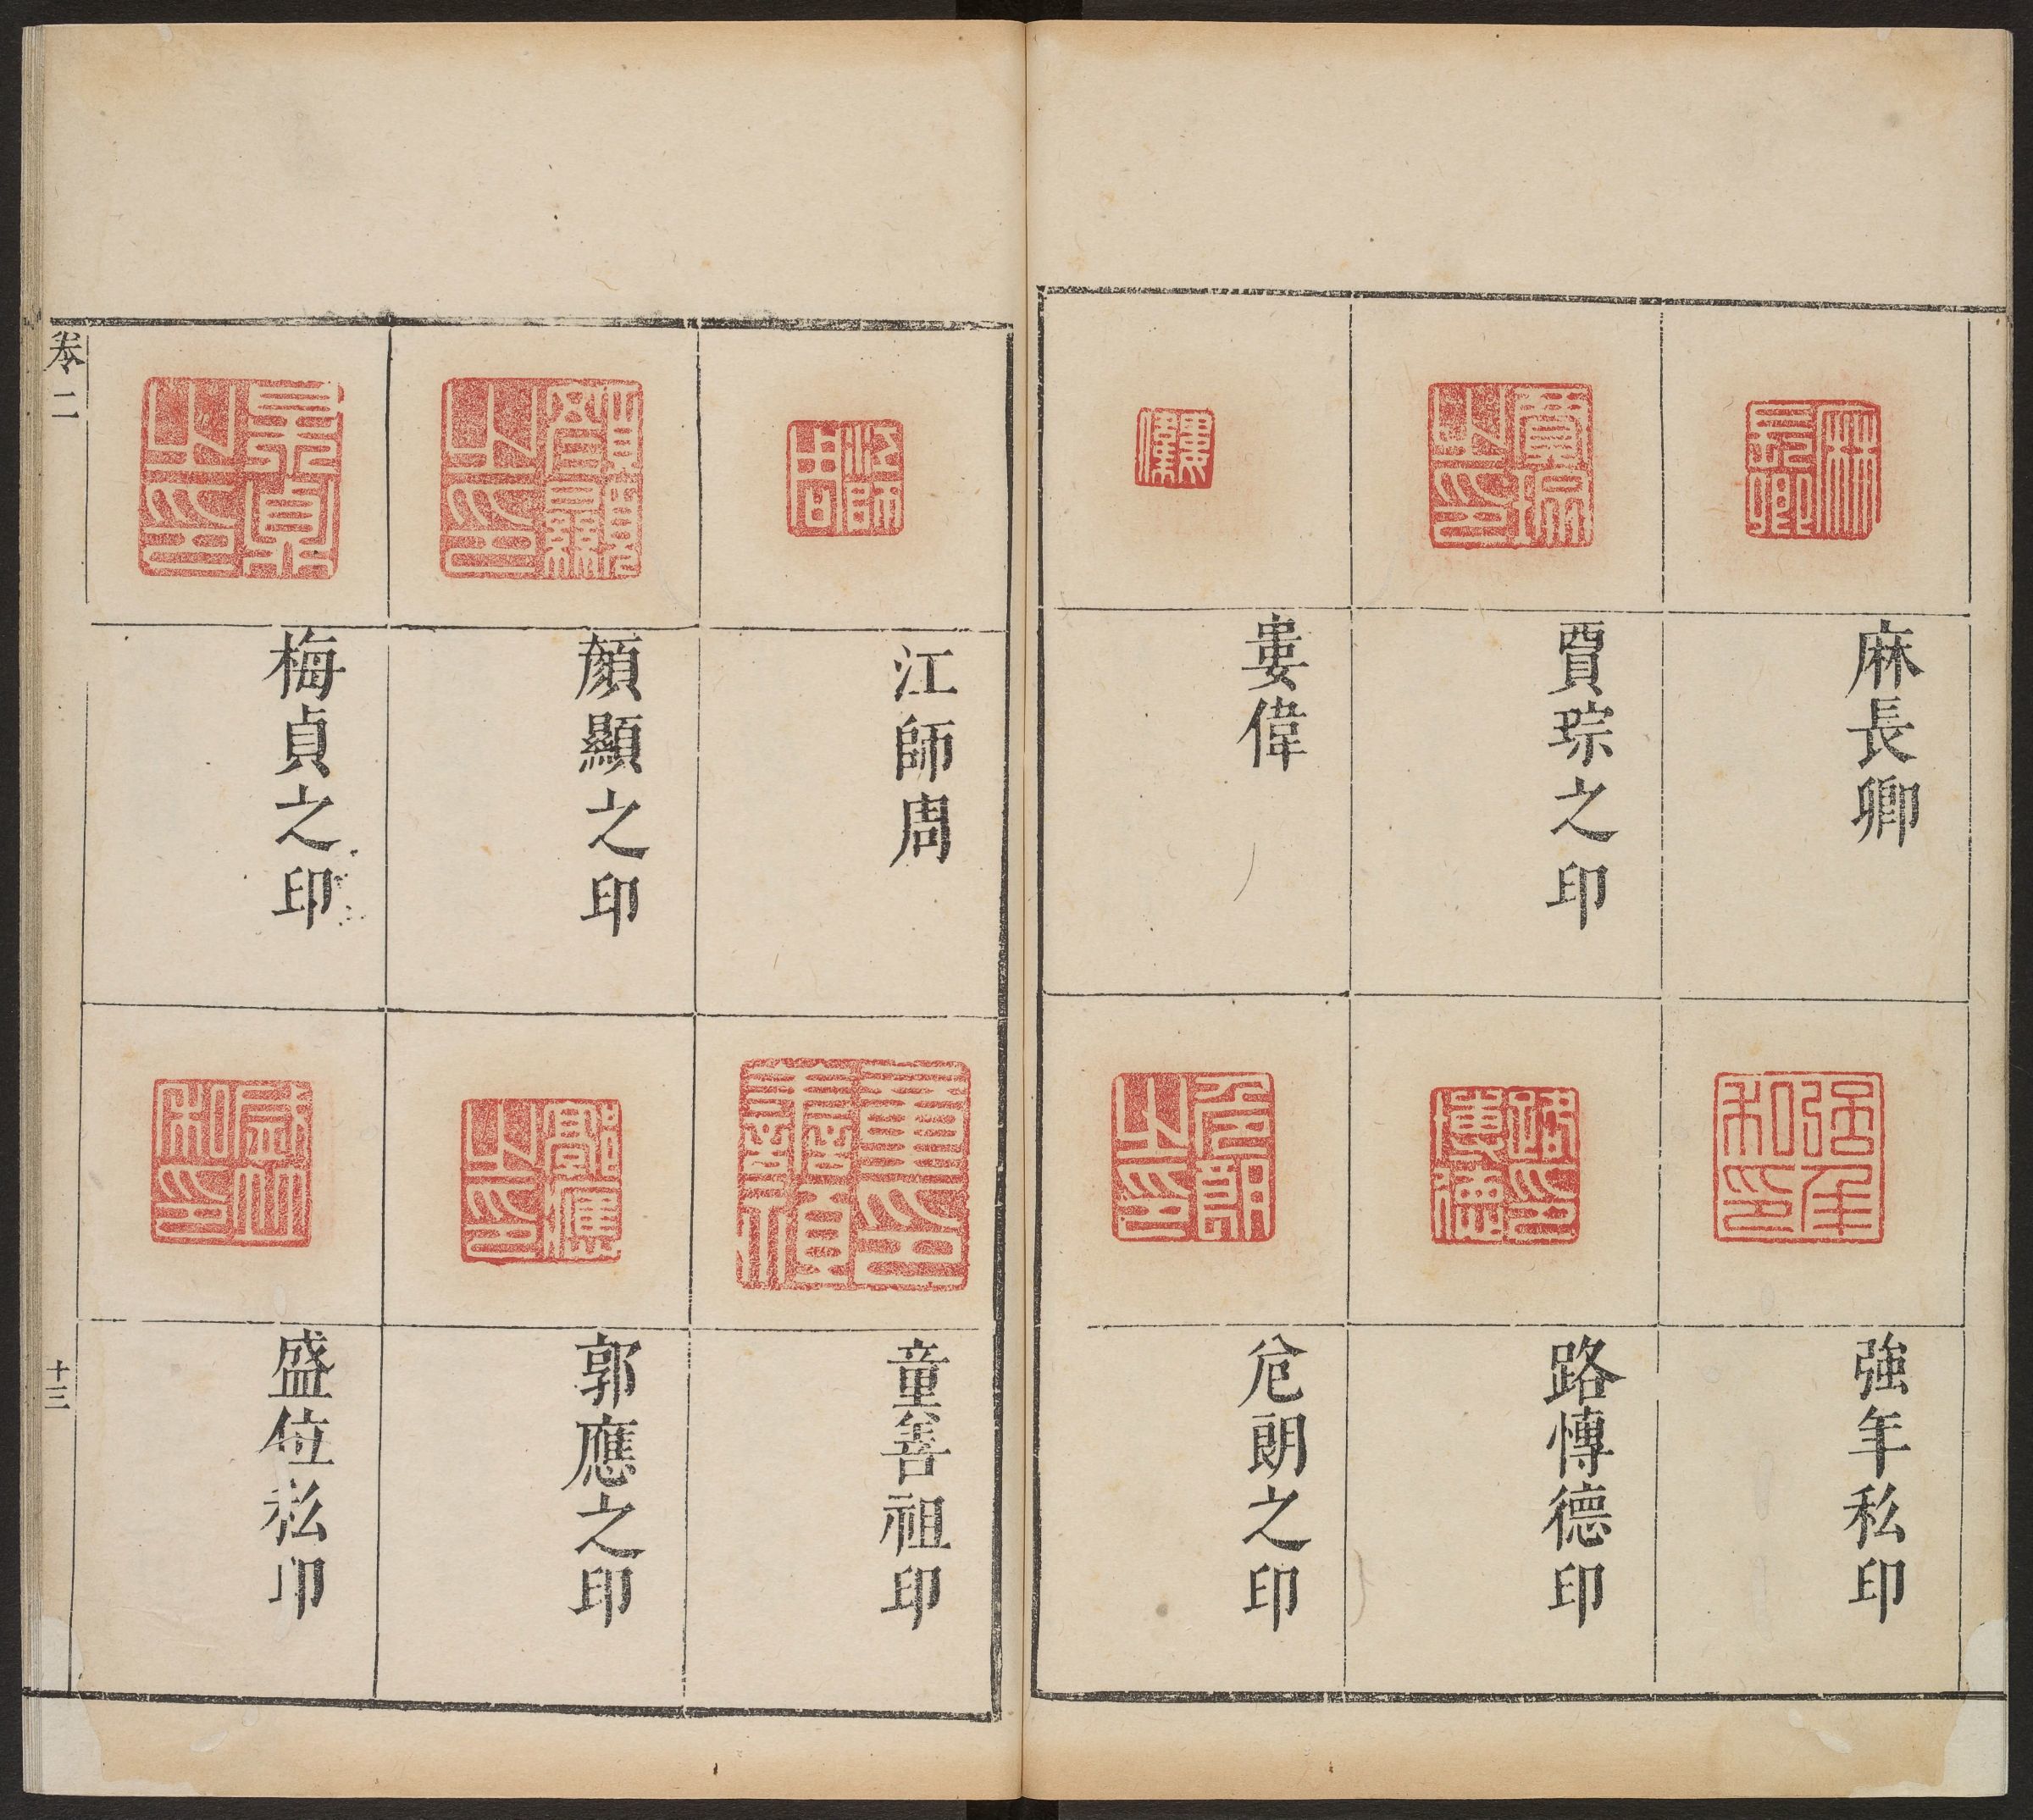 麻長卿
賈琮之印
婁偉
強年私印
路愽德印
卮朗之印
江師周
顏顯之印
梅貞之印
童善祖印
郭應之印
盛位私印
卷二
十三